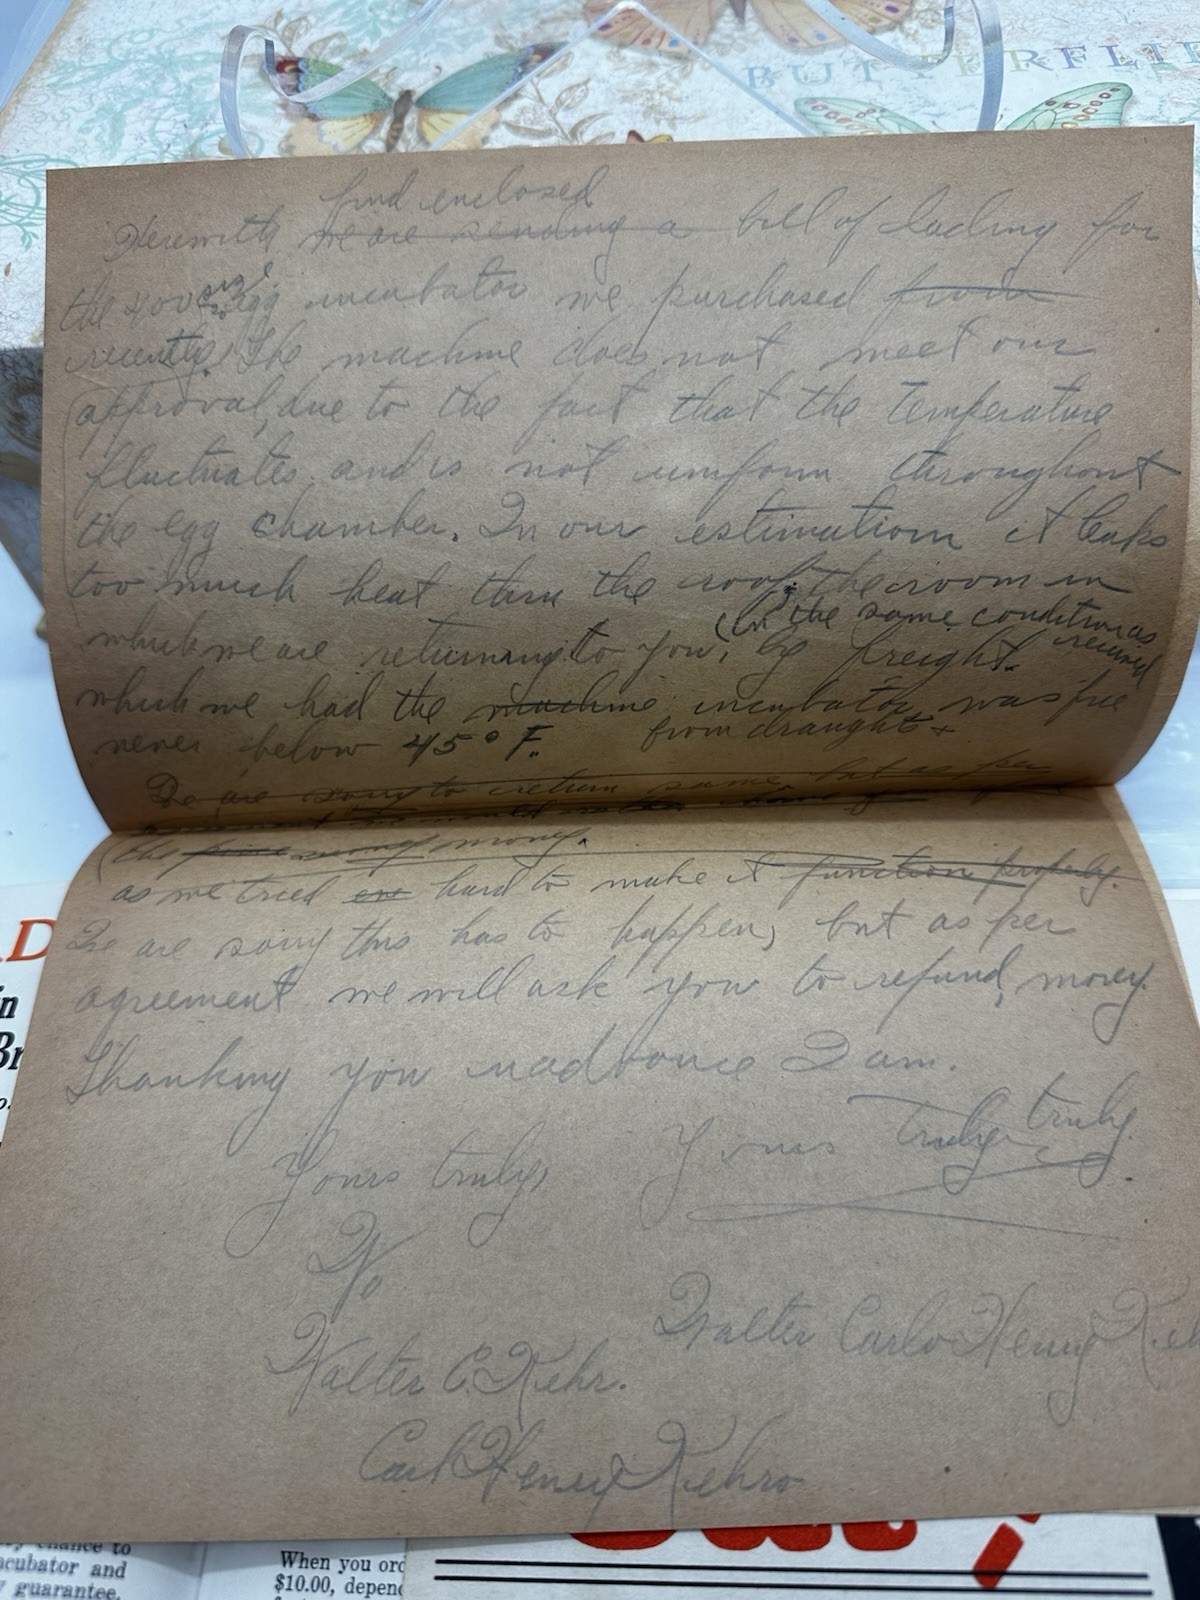 BUTTERFLIE
find enclosed
Herewith we are sending a bill of lading for
the 400 size egg incubator we purchased from
recently. The machine does not meet our
approval, due to the fact that the temperature
fluctuates and is not uniform throughout
the egg chamber. In our estimation it leaks
too much heat thru the roof; the room in
(in the same condition as
received
which we are returning to you, by freight.
which we had the machine incubator was free
from draught +
never below 45° F.
We are sorry to return same, but as per
agreement we would rather have
the money.
as we tried hard to make it function properly.
We are sorry this has to happen, but as per
agreement we will ask you to refund money.
Thanking you inadvance I am.
Yours truly truly.
Yours truly,
W
Walter Carlo Henry Keh
Walter C. Kehr.
Carl Henry Kehro
D
in
Br
o.
chance to
ncubator and
guarantee.
When you ord
$10.00, depend